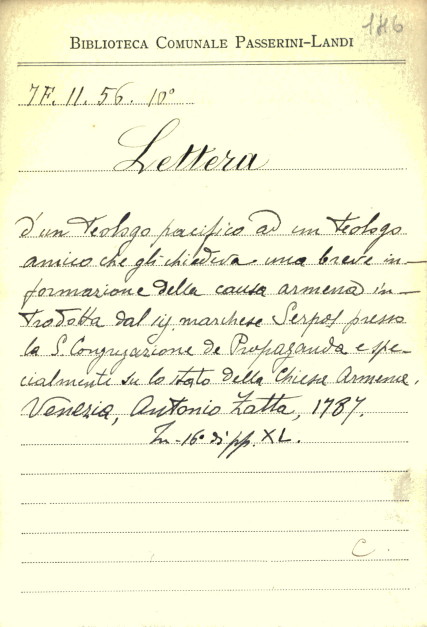 146
BIBLIOTECA COMUNALE PASSERINI-LANDI
7F. 11. 56. 10º
Lettera
d'un teologo pacifico ad un teologo
amico che gli chiedeva una breve in-
formazione della causa armena in-
trodotta dal sig. marchese Serpos presso
la S. Congregazione de Propaganda e spe-
cialmente su lo stato della Chiesa Armena.
Venezia, Antonio Zatta, 1787.
In-16º di pp. XL.
C.